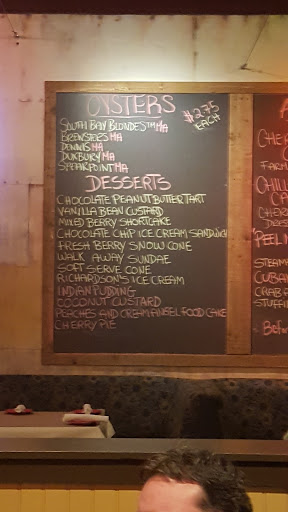 OYSTERS
$2.75
EACH
SOUTH BAY BLONDES™ MA
BREWSTERS MA
DENNIS MA
DUXBURY MA
POINT MA
DESSERTS
CHOCOLATE PEANUT BUTTER TART
VANILLA BEAN CUSTARD
MIXED BERRY SHORTCAKE
CHOCOLATE CHIP ICE CREAM SANDWICH
FRESH BERRY SNOW CONE
WALK AWAY SUNDAE
SOFT SERVE CONE
RICHARDSON'S ICE CREAM
INDIAN PUDDING
COCONUT CUSTARD
PEACHES AND CREAM ANGEL FOOD CAKE
CHERRY PIE
A
CHER
C
FARM
CHILL
CA
CHER
"PEEL
STEAM
CUBAN
CRAB
STUFFIN
Befor